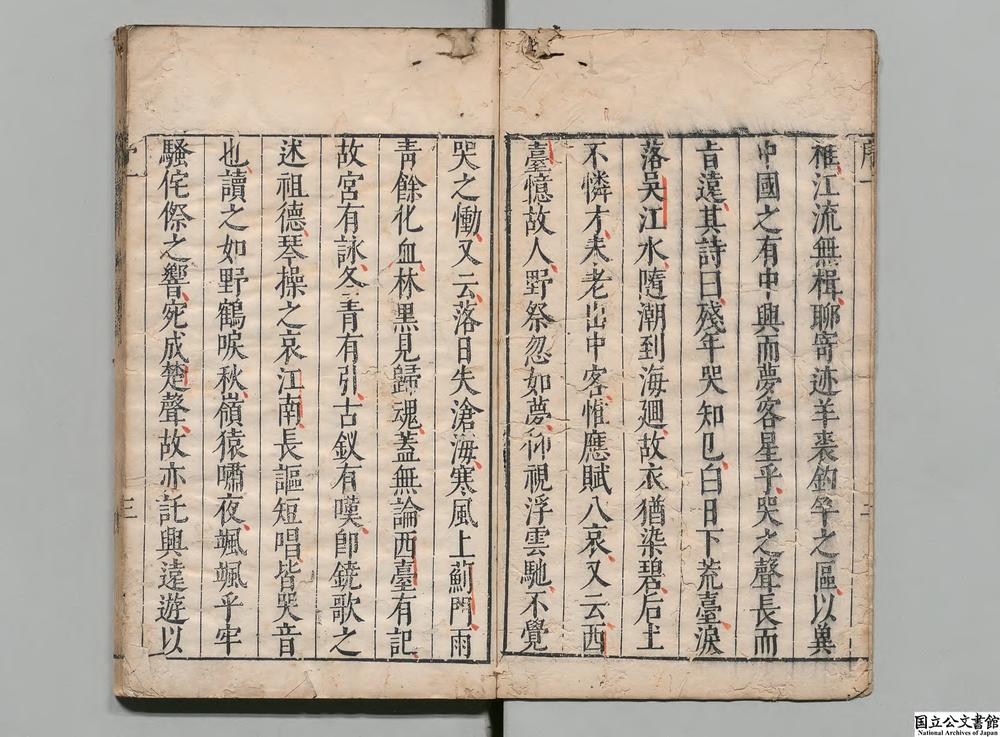 稚江流無楫聊寄迹羊裘釣竿之區以冀
中國之有中興而夢客星乎哭之聲長而
旨遠其詩曰殘年哭知已白日下荒臺淚
落吳江水隨潮到海廻故衣猶染碧后土
不憐才夫老出中客惟應賦八哀又云西
臺憶故人野祭忽如夢仰視浮雲馳不覺
哭之慟又云落日失滄海寒風上薊門雨
青餘化血林黑見歸魂蓋無論西臺有記
故宮有詠冬青有引古釵有嘆卽鏡歌之
述祖德琴操之哀江南長謳短唱皆哭音
也讀之如野鶴唳秋嶺猿嘯夜颯颯乎牢
騷侘傺之響宛成楚聲故亦託興遠遊以
三
国立公文書館
National Archives of Japan